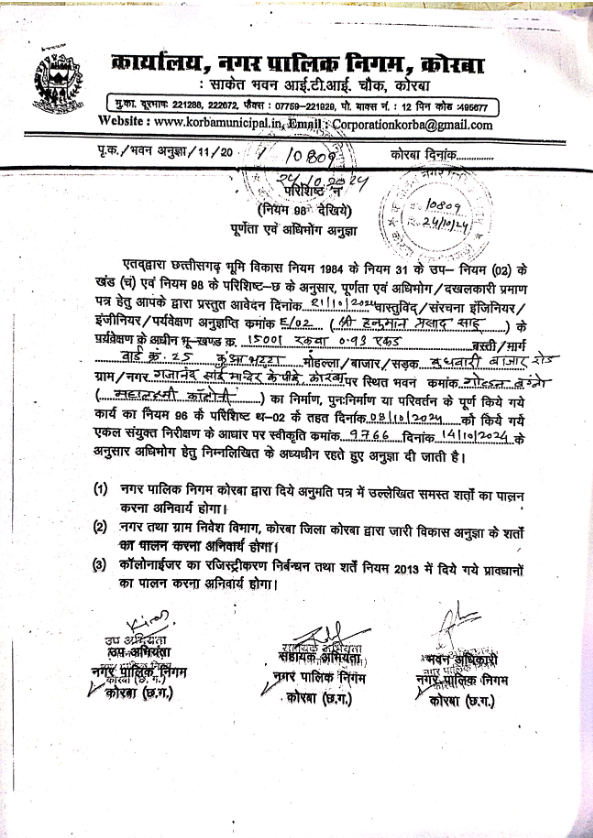 कार्यालय, नगर पालिक निगम, कोरबा
: साकेत भवन आई.टी.आई. चौक, कोरबा
मु.का. दूरभाष: 221288, 222672, फैक्स : 07759-221929, पो. बाक्स नं. : 12 पिन कोड :495677
Website : www.korbamunicipal.in, Email : Corporationkorba@gmail.com
पृ.क./भवन अनुज्ञा/11/20 10809 कोरबा दिनांक............
24.10.2024
परिशिष्ट न
10809
24/10/24
(नियम 98 देखिये)
पूर्णता एवं अधिभोग अनुज्ञा
एतद्द्वारा छत्तीसगढ़ भूमि विकास नियम 1984 के नियम 31 के उप- नियम (02) के
खंड (च) एवं नियम 98 के परिशिष्ट-छ के अनुसार, पूर्णता एवं अधिभोग/दखलकारी प्रमाण
पत्र हेतु आपके द्वारा प्रस्तुत आवेदन दिनांक 21/10/2024 वास्तुविद/संरचना इंजिनियर/
इंजीनियर/पर्यवेक्षण अनुज्ञप्ति कमांक E/02 (श्री हनुमान प्रसाद साहू) के
पर्यवेक्षण के अधीन भू-खण्ड क्र. 1500/1 रकबा 0.93 एकड़ बस्ती/मार्ग
वार्ड क्रं. 25 कुंआभट्टा मोहल्ला/बाजार/सड़क बुधवारी बाजार रोड
ग्राम/नगर गजानंद साईं मंदिर के पीछे, कोरबा पर स्थित भवन कमांक गोल्डन
(महालक्ष्मी कॉलोनी) का निर्माण, पुनःनिर्माण या परिवर्तन के पूर्ण किये गये
कार्य का नियम 96 के परिशिष्ट थ-02 के तहत दिनांक 08/10/2024 को किये गये
एकल संयुक्त निरीक्षण के आधार पर स्वीकृति कमांक 9766 दिनांक 14/10/2024 के
अनुसार अधिभोग हेतु निम्नलिखित के अध्यधीन रहते हुए अनुज्ञा दी जाती है।
(1) नगर पालिक निगम कोरबा द्वारा दिये अनुमति पत्र में उल्लेखित समस्त शर्तों का पालन
करना अनिवार्य होगा।
(2) नगर तथा ग्राम निवेश विभाग, कोरबा जिला कोरबा द्वारा जारी विकास अनुज्ञा के शर्तों
का पालन करना अनिवार्य होगा।
(3) कॉलोनाईजर का रजिस्ट्रीकरण निर्बन्धन तथा शर्ते नियम 2013 में दिये गये प्रावधानों
का पालन करना अनिवार्य होगा।
उप अभियंता सहायक अभियंता
उप अभियंता सहायक अभियंता भवन अधिकारी
नगर पालिक निगम नगर पालिक निगम नगर पालिक निगम
कोरबा (छ.ग.) कोरबा (छ.ग.) कोरबा (छ.ग.)